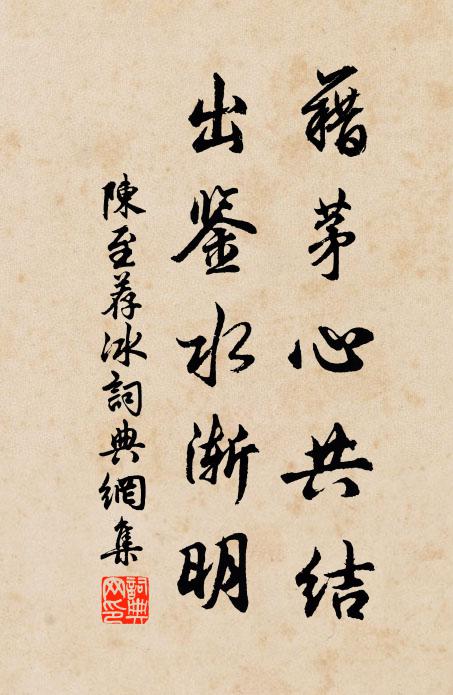 藉茅心共结
出鉴水渐明
陳至荐冰詞典網集
詞典网印